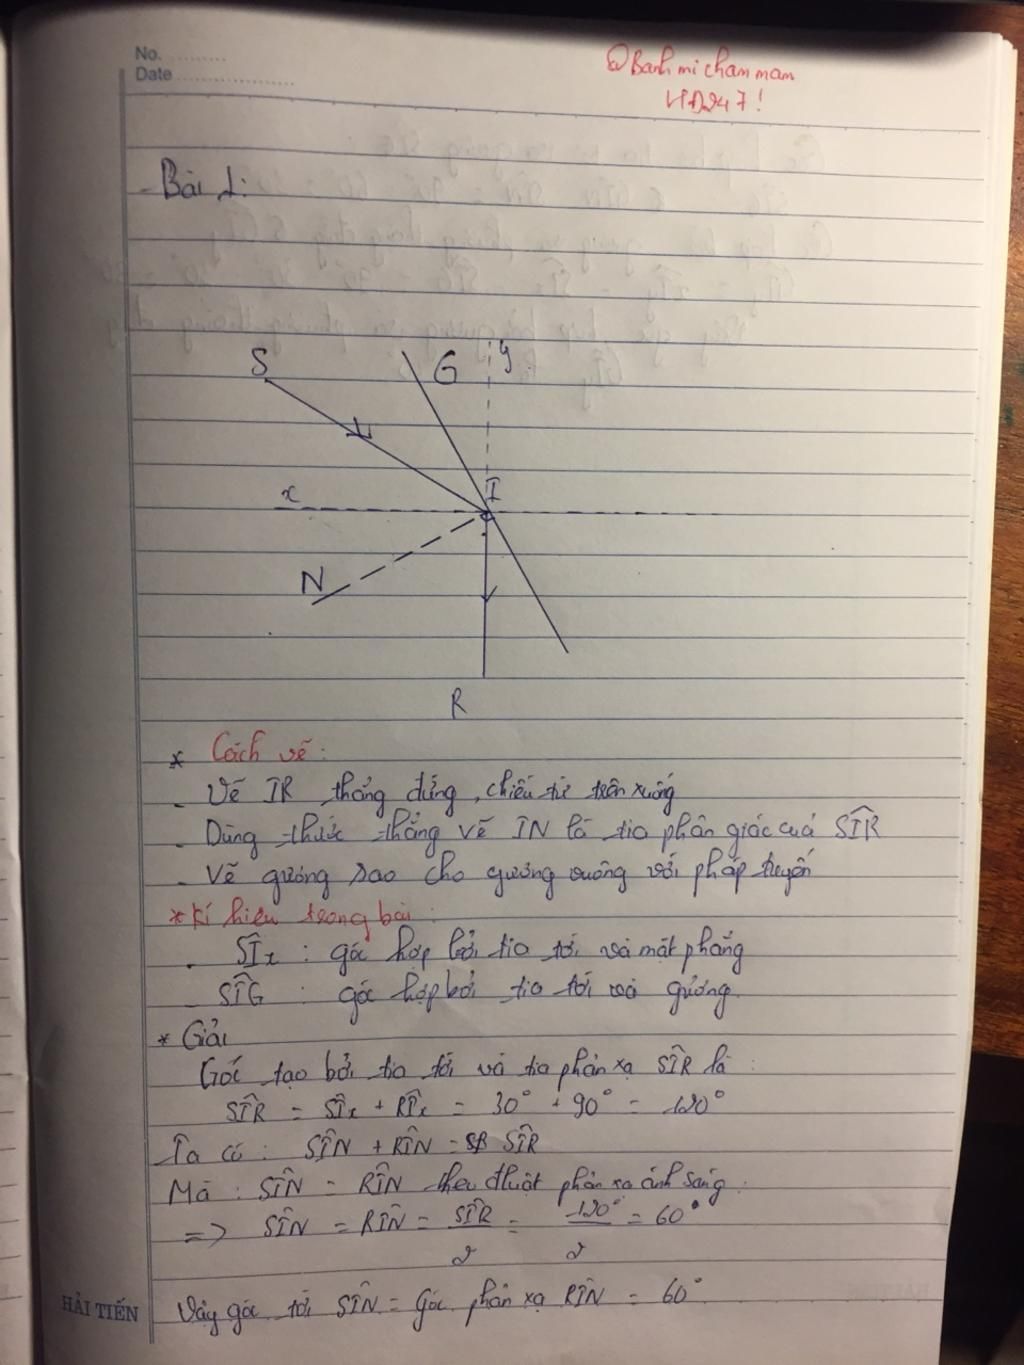 No. ..........
Date ......................
@Banhmichammam
HĐ247!
- Bài 1:
S
G
y
x
I
N
R
* Cách vẽ:
- Vẽ IR thẳng đứng, chiều từ trên xuống
- Dùng thước thẳng vẽ IN là tia phân giác cuả SÎR
- Vẽ gương sao cho gương vuông với pháp tuyến
* Kí hiệu trong bài:
- SÎx : góc hợp bởi tia tới và mặt phẳng
- SÎG : góc hợp bởi tia tới và gương.
* Giải
Góc tạo bởi tia tới và tia phản xạ SÎR là :
SÎR = SÎx + RÎx = 30° + 90° = 120°
Ta có : SÎN + RÎN = SÎR
Mà : SÎN = RÎN theo đluật phản xạ ánh sáng.
=> SÎN = RÎN = SÎR/2 = 120°/2 = 60°
HẢI TIẾN
Vậy góc tới SÎN = Góc phản xạ RÎN = 60°